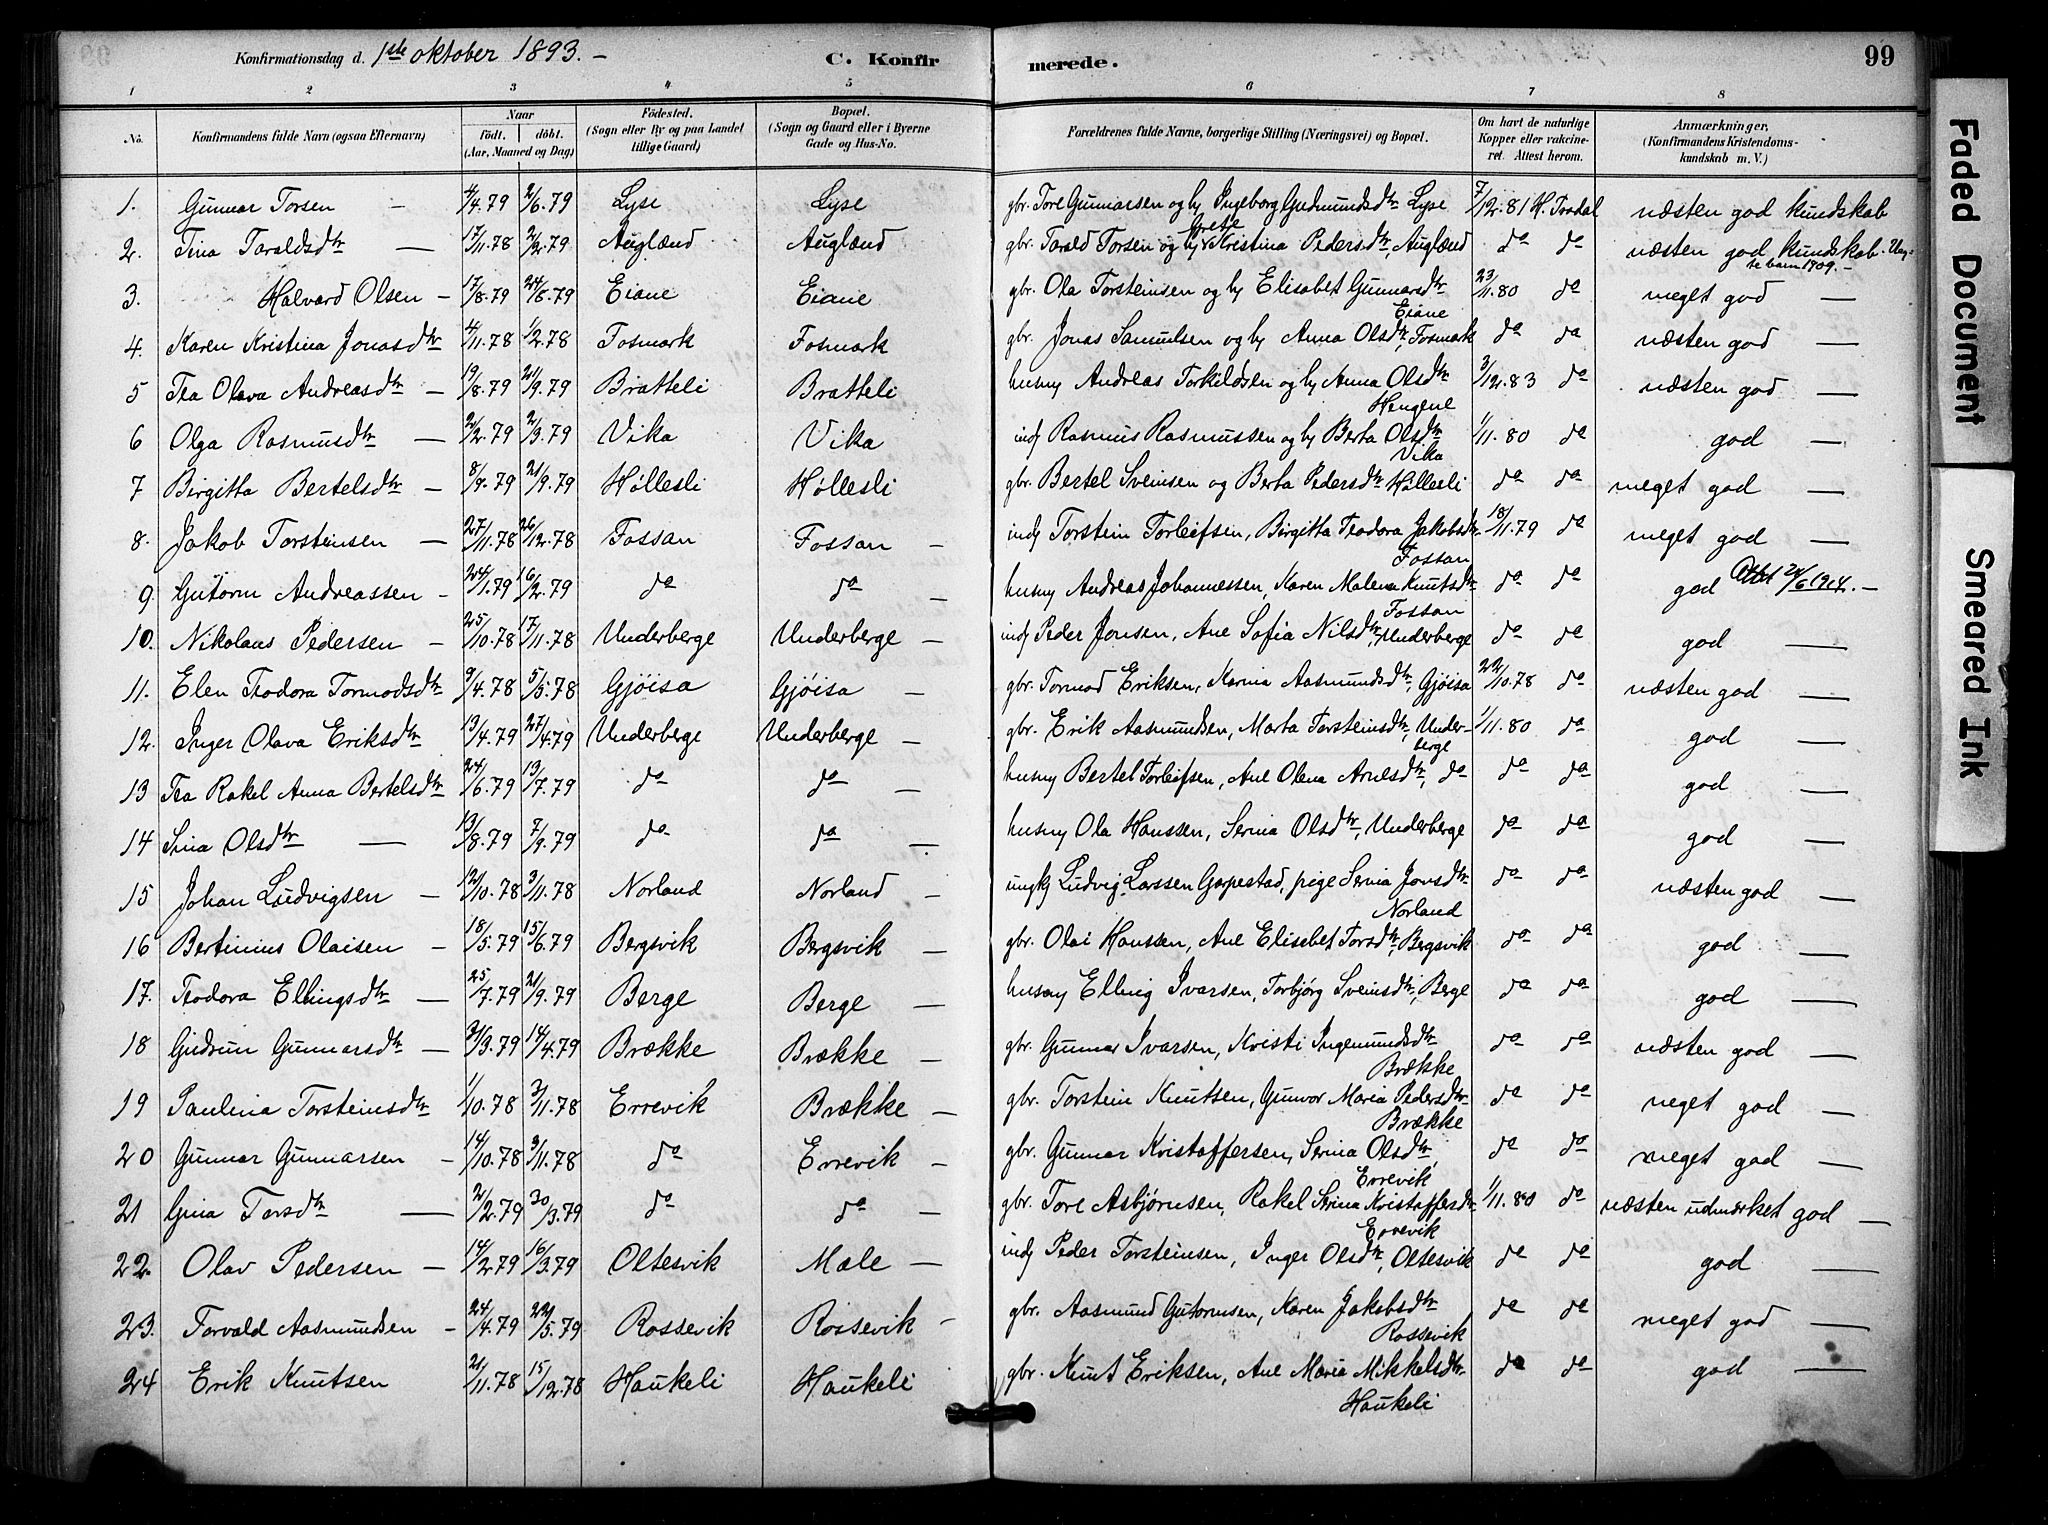 Konfirmationsdag d. 1ste oktober 1893. – C. Konfirmerede. 99
1 2 3 4 5 6 7 8
No. Konfirmandens fulde Navn (ogsaa Efternavn) Naar født. døbt. (Aar, Maaned og Dag) Fødested. (Sogn eller By og paa Landet tillige Gaard) Bopæl. (Sogn og Gaard eller i Byerne Gade og Hus-No. Forældrenes fulde Navne, borgerlige Stilling (Næringsvei) og Bopæl. Om havt de naturlige Kopper eller vakcineret. Attest herom. Anmærkninger, (Konfirmandens Kristendomskundskab m. V.)
1. Gunnar Torsen – 4/4.79 2/6.79 Lyse Lyse gbr. Tore Gunnarsen og hu Ingeborg Gudmundsdtr Lyse 7/12.81 H. Tvedal næsten god kundskab
2. Tina Taraldsdtr — 17/11.78 2/2.79 Auglænd Auglænd gbr. Tarald Torsen og hu Grete Kristina Pedersdtr, Auglænd do do næsten god kundskab.
3. Halvard Olsen – 17/8.79 24/8.79 Eiane Eiane gbr. Ola Torsteinsen og hu Elisabet Gunnarsdtr Eiane 23/11.80 do meget god —
4. Karen Kristina Jonasdtr 4/11.78 1/2.78 Fosmark Fosmark gbr. Jonas Samuelsen og hu Anna Olsdtr, Fosmark do do næsten god —
5 Tea Olava Andreasdtr – 19/8.79 21/9.79 Bratteli Bratteli husm Andreas Torkildsen og hu Anna Olsdtr Hengene 3/12.83 do næsten god —
6 Olga Rasmusdtr — 2/2.79 2/3.79 Vika Vika inds Rasmus Rasmussen og hu Berta Olsdtr Vika 1/11.80 do god —
7 Birgitta Bertelsdtr – 8/9.79 21/9.79 Høllesli Høllesli gbr. Bertel Sveinsen og Berta Pedersdtr Høllesli do do meget god —
8. Jakob Torsteinsen – 27/11.78 26/12.78 Fossan Fossan – inds Torstein Torleifsen, Birgitta Teodora Jakobsdtr Fossan 18/11.79 do meget god —
9. Gutorm Andreassen – 24/1.79 16/2.79 do do – husm Andreas Johannessen, Karen Malena Knutsdtr Fossan do do god Attst 24/6 1914. –
10. Nikolaus Pedersen – 25/10.78 17/11.78 Underberge Underberge – inds Peder Jonsen, Ane Sofia Nilsdtr, Underberge do do god —
11. Elen Teodora Tormodsdtr 9/4.78 5/5.78 Gjøisa Gjøisa – gbr. Tormod Eriksen, Karina Aasmundsdtr, Gjøisa 22/10.78 do næsten god —
12. Inger Olava Eriksdtr 13/4.79 27/4.79 Underberge Underberge – gbr. Erik Aasmundsen, Marta Torsteinsdtr, Underberge 1/11.80 do god —
13 Tea Rakel Anna Bertelsdtr 24/6.79 13/7.79 do do – husm Bertel Torleifsen, Ane Olena Arnesdtr, do do do god —
14 Sina Olsdtr — 13/8.79 7/9.79 do do – husm Ola Hanssen, Serina Olsdtr, Underberge do do god —
15 Johan Ludvigsen – 12/10.78 3/11.78 Norland Norland – ungk Ludvig Larssen Garpestad, pige Serina Jonsdtr Norland do do næsten god —
16 Bertinius Olaisen – 18/5.79 15/6.79 Bergsvik Bergsvik – gbr. Olai Hanssen, Ane Elisebet Torsdtr, Bergsvik do do god —
17. Teodora Ellingsdtr — 25/7.79 21/9.79 Berge Berge – husm Elling Ivarsen, Torbjørg Sveinsdtr, Berge do do god —
18 Gudrun Gunnarsdtr — 31/3.79 14/4.79 Brække Brække – gbr. Gunnar Ivarsen, Kristi Ingemundsdtr Brække do do næsten god —
19 Paulina Torsteinsdtr 1/10.78 3/11.78 Errevik Brække – gbr. Torstein Knutsen, Gunvor Maria Pedersdtr Brække do do meget god —
20 Gunnar Gunnarsen – 14/10.78 3/11.78 do Errevik – gbr. Gunnar Kristoffersen, Serina Olsdtr, Errevik do do meget god —
21 Gina Torsdtr — 2/2.79 30/3.79 do do – gbr. Tore Asbjørnsen, Rakel Serina Kristoffersdtr Errevik 1/11.80 do næsten udmærket god —
22. Olav Pedersen – 14/2.79 16/3.79 Oltesvik Mæle – inds Peder Torsteinsen, Inger Olsdtr, Oltesvik do do god —
23. Torvald Aasmundsen – 24/4.79 22/5.79 Rossevik Rossevik – gbr. Aasmund Gutormsen, Karen Jakobsdtr Rossevik do do meget god —
24 Erik Knutsen 21/11.78 15/12.78 Haukeli Haukeli gbr. Knut Eriksen, Ane Maria Mikkelsdtr Haukeli do do god —
Faded Document
Smeared Ink